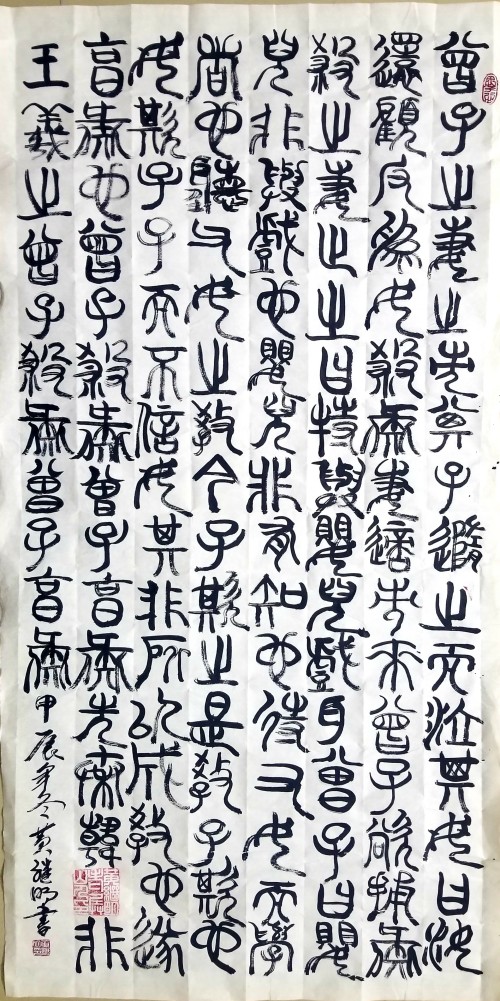 曾子之妻之市其子隨之而泣其母曰汝
還顧反為女殺彘妻適市來曾子欲捕彘
殺之妻止之曰特與嬰兒戲耳曾子曰嬰
兒非與戲也嬰兒非有知也待父母而學
者也聽父母之教今子欺之是教子欺也
母欺子子而不信母其非所以成教也遂
烹彘也曾子殺彘曾子烹彘先秦韓非
王羲之曾子殺彘曾子烹彘甲辰年冬黃繼明書